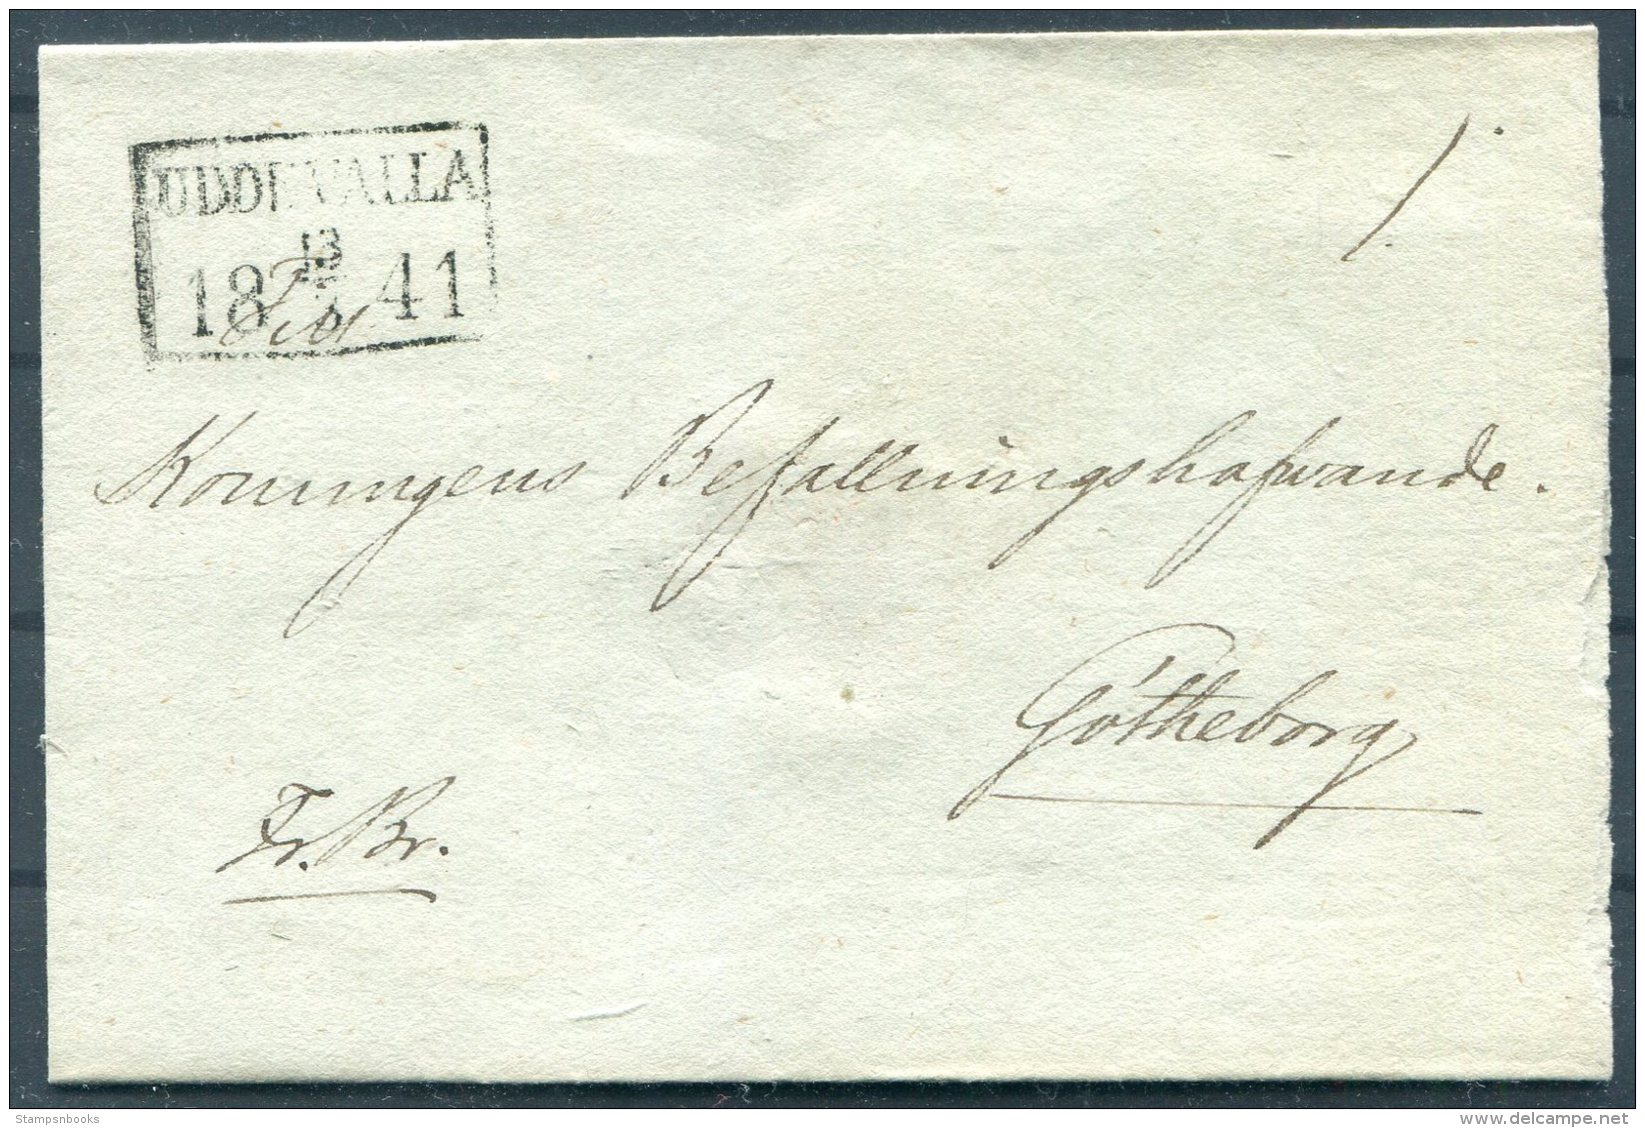 UDDEVALLA
13
18 41
Till
1.
Konungens Befallningshafwande.
Götheborg
Fr. Br.
Stampsnbooks
delcampe.net